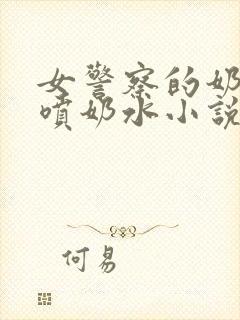 女警察的奶
噴奶水小說
何易